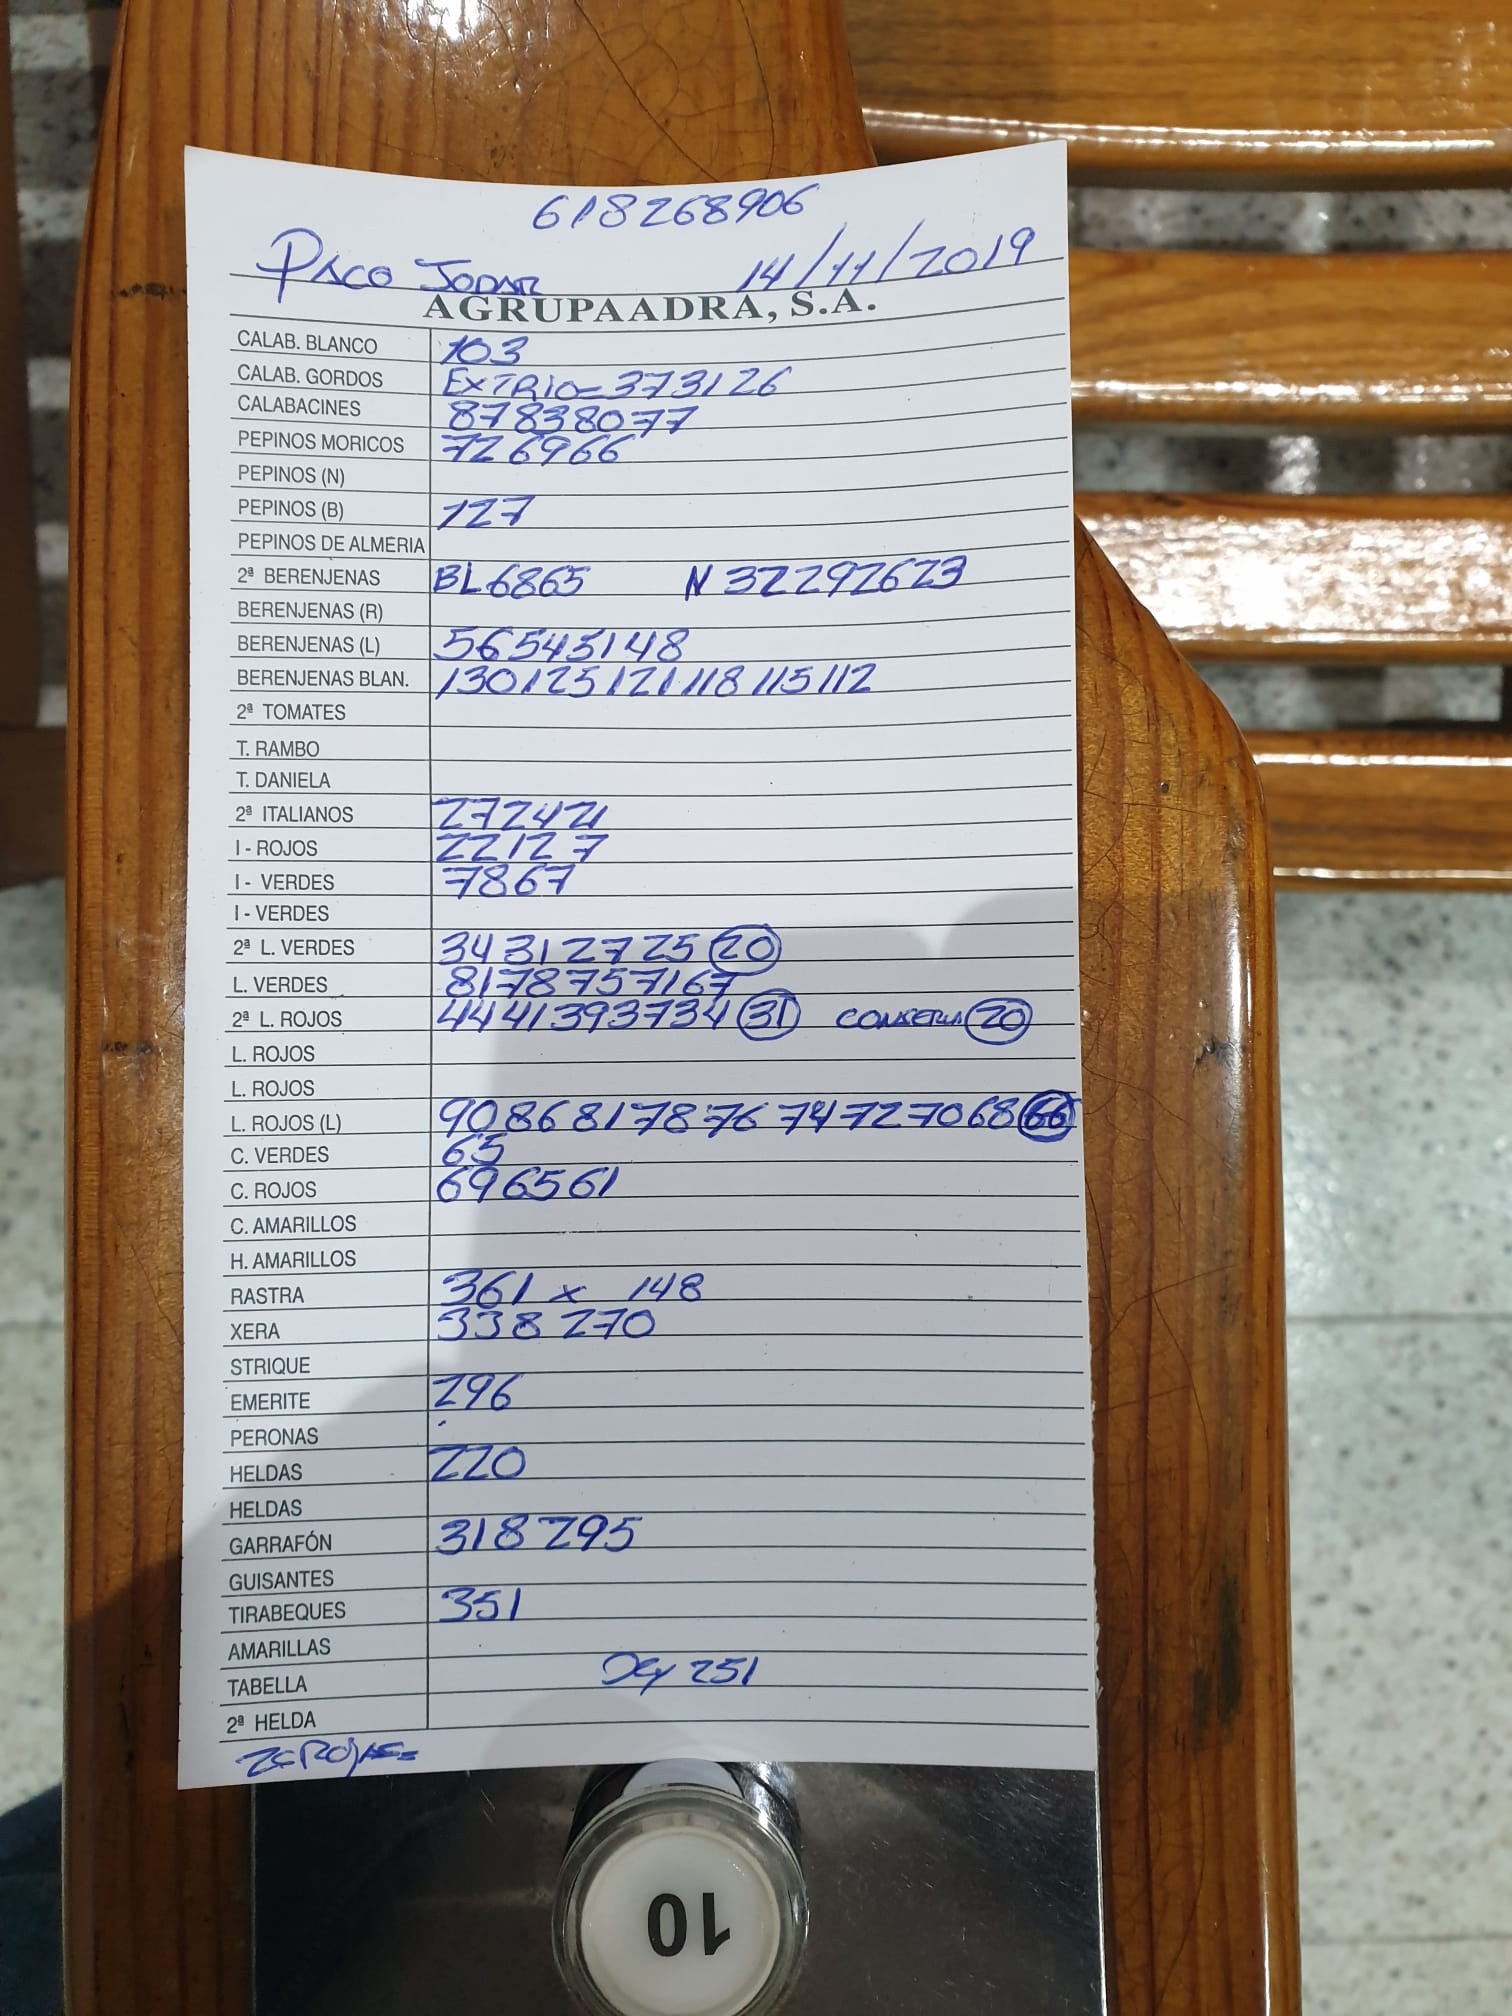 618268906
PACO JODAR 14/11/2019
AGRUPAADRA, S.A.
CALAB. BLANCO 103
CALAB. GORDOS EXTRIO=373126
CALABACINES 87838077
PEPINOS MORICOS 726966
PEPINOS (N)
PEPINOS (B) 127
PEPINOS DE ALMERIA
2ª BERENJENAS BL6865 N 32292623
BERENJENAS (R)
BERENJENAS (L) 565451 48
BERENJENAS BLAN. 130125121118115112
2ª TOMATES
T. RAMBO
T. DANIELA
2ª ITALIANOS 272421
I - ROJOS 22127
I - VERDES 7867
I - VERDES
2ª L. VERDES 34312725 20
L. VERDES 8178757167
2ª L. ROJOS 4441393734 31 CONSERVA 20
L. ROJOS
L. ROJOS
L. ROJOS (L) 908681787674727068 66
C. VERDES 65
C. ROJOS 696561
C. AMARILLOS
H. AMARILLOS
RASTRA 361 x 148
XERA 338 270
STRIQUE
EMERITE 296
PERONAS
HELDAS 220
HELDAS
GARRAFÓN 318 295
GUISANTES
TIRABEQUES 351
AMARILLAS
TABELLA 251
2ª HELDA
10